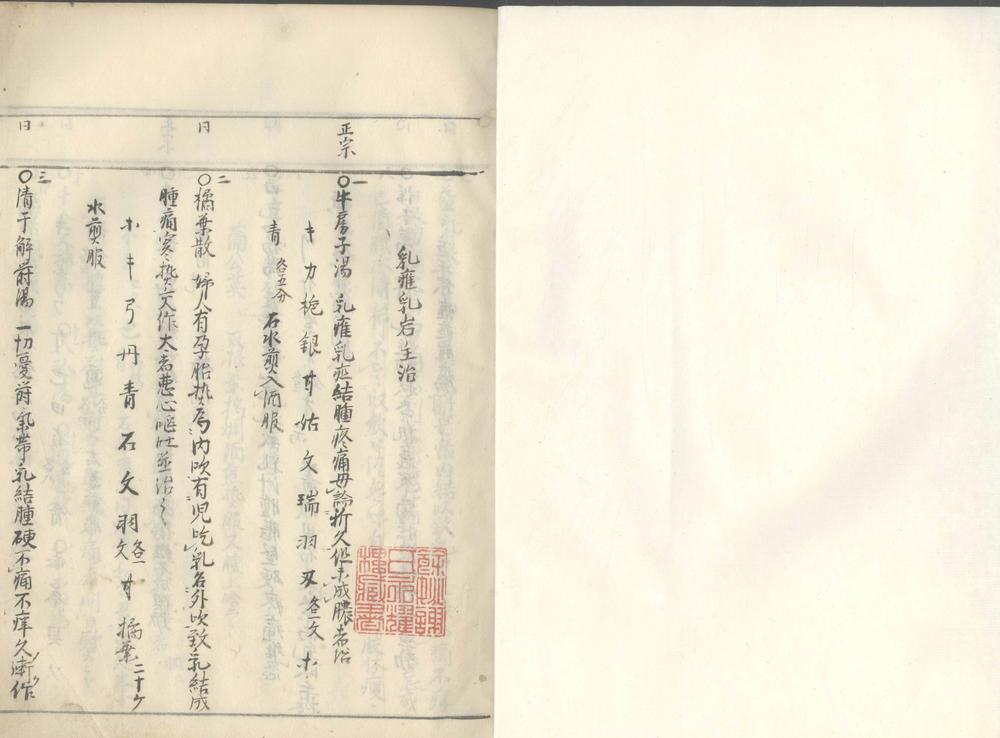 乳癰乳岩主治
正宗
〇一牛房子湯 乳癰乳疽結腫疼痛毋論新久但未成膿者治
キ カ 枙 銀 甘 姑 文 瑞 羽 刄 各一文 ホ
青 各五分 石水煎入酒服
曰
〇二橘葉散 婦人有孕胎熱為内吹有児吃乳名外吹致乳結成
腫痛寒熱交作大者悪心嘔吐並治之
ホ キ 弓 丹 青 石 文 羽 各一文 甘 橘葉 二十ケ
水煎服
曰
〇三清于解欝湯 一切憂欝氣滯乳結腫硬不痛不痒久漸作